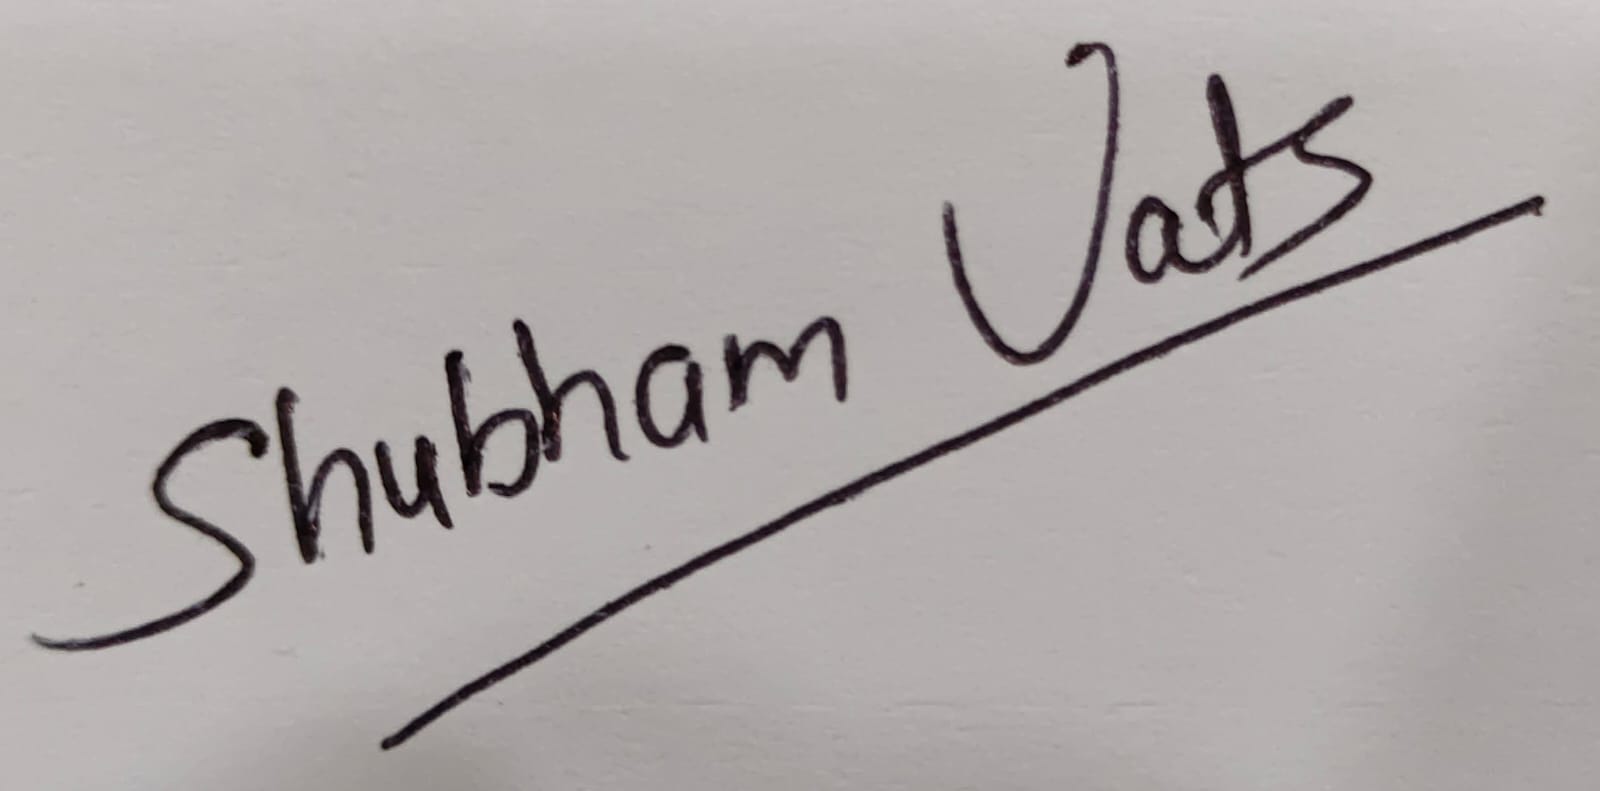 Shubham Vats